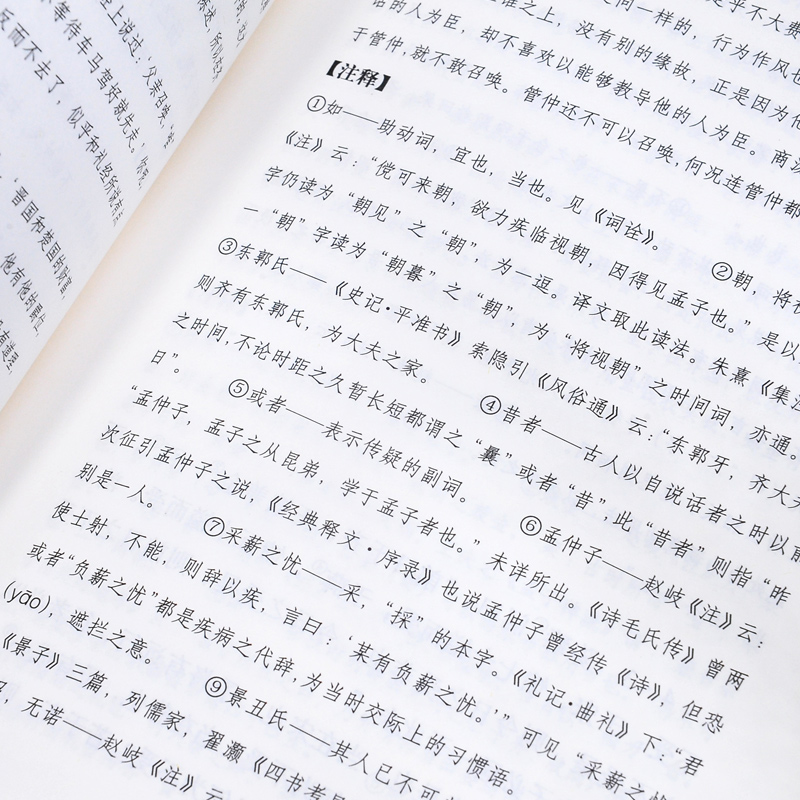 上说过：‘父亲召唤，
等待车马驾好就先走。’
反而不去了，似乎和礼经所说有些
“晋国和楚国的财富，
他有他的爵位，
是乎不大费
之间一样的，行为作风也
谁之上，没有别的缘故，正是因为他
话的人为臣，却不喜欢以能够教导他的人为臣。商汤
于管仲，就不敢召唤。管仲还不可以召唤，何况连管仲都
【注释】
①如——助动词，宜也，当也。见《词诠》。 ②朝，将视
《注》云：“傥可来朝，欲力疾临视朝，因得见孟子也。”是以
字仍读为“朝见”之“朝”，为一逗。译文取此读法。朱熹《集注
一“朝”字读为“朝暮”之“朝”，为“将视朝”之时间词，亦通。
③东郭氏——《史记·平准书》索隐引《风俗通》云：“东郭牙，齐大夫
则齐有东郭氏，为大夫之家。 ④昔者——古人以自说话者之时以前
之时间，不论时距之久暂长短都谓之“曩”或者“昔”，此“昔者”则指“昨
日”。 ⑤或者——表示传疑的副词。 ⑥孟仲子——赵岐《注》云：
“孟仲子，孟子之从昆弟，学于孟子者也。”未详所出。《诗毛氏传》曾两
次征引孟仲子之说，《经典释文·序录》也说孟仲子曾经传《诗》，但恐
别是一人。 ⑦采薪之忧——采，“採”的本字。《礼记·曲礼》下：“君
使士射，不能，则辞以疾，言曰：‘某有负薪之忧。’”可见“采薪之忧
或者“负薪之忧”都是疾病之代辞，为当时交际上的习惯语。
(yāo)，遮拦之意。 ⑨景丑氏——其人已不可
《景子》三篇，列儒家，翟灏《四书考异
，无诺——赵岐《注》云